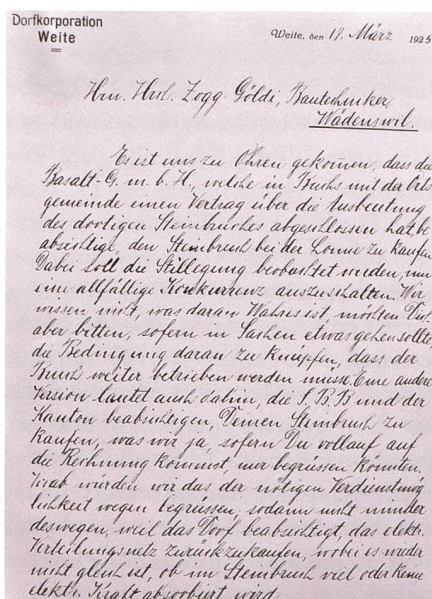 Dorfkorporation
Weite
Weite, den 18. März 1925
Hrn. Hrch. Zogg-Göldi, Bautechniker
Wädenswil.
Es ist uns zu Ohren gekommen, dass die
Basalt-G.m.b.H., welche in Buchs mit der Orts
gemeinde einen Vertrag über die Ausbeutung
des dortigen Steinbruches abgeschlossen habe
absichtige, den Steinbruch bei der Sonne zu kaufen
Dabei soll die Stillegung beobachtet werden, um
eine allfällige Konkurrenz auszuschalten. Wir
wissen nicht, was daran Wahres ist, möchten Dich
aber bitten, sofern in Sachen etwas gehen sollte,
die Bedingung daran zu knüpfen, dass der
Bruch weiter betrieben werden müsse. Eine andere
Version lautet auch dahin, die S.B.B und der
Kanton beabsichtigen, Deinen Steinbruch zu
kaufen, was wir ja, sofern Du vollauf auf
die Rechnung kommst, nur begrüssen könnten.
würden wir das der nötigen Verdienstmög
lichkeit wegen begrüssen, sodann nicht minder
deswegen, weil das Dorf beabsichtigt, das elektr.
Verteilungsnetz zurückzukaufen, wobei es wieder
nicht gleich ist, ob im Steinbruch viel oder keine
elektr. Kraft absorbiert wird.